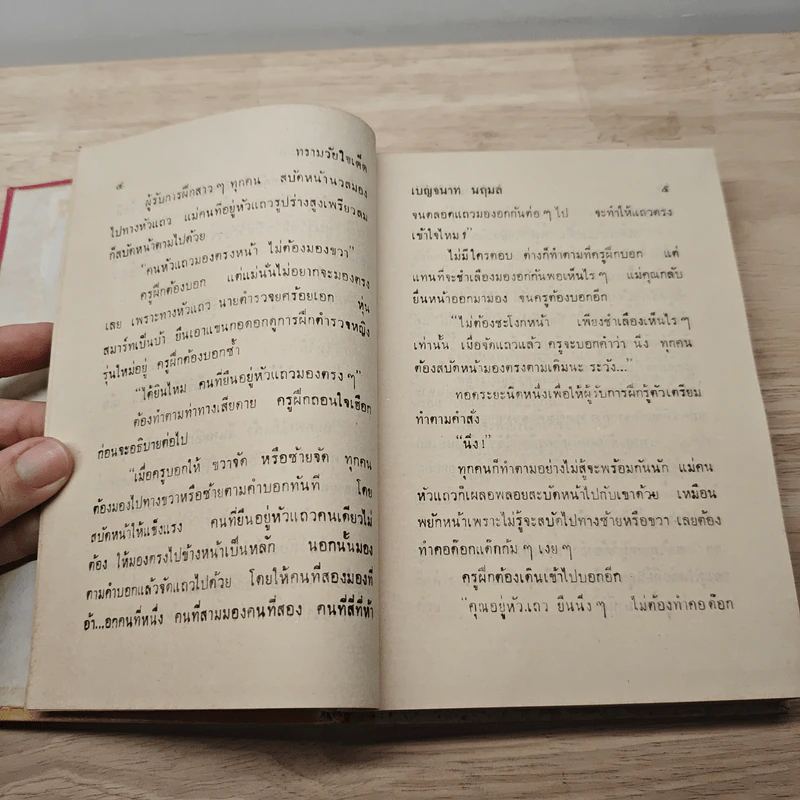 ๔
ทรามวัยใจเด็ด
ผู้รับการฝึกสาว ๆ ทุกคน สบัดหน้านวลมอง
ไปทางหัวแถว แม่คนที่อยู่หัวแถวรูปร่างสูงเพรียวลม
ก็สบัดหน้าตามไปด้วย
“คนหัวแถวมองตรงหน้า ไม่ต้องมองขวา”
ครูฝึกต้องบอก แต่แม่นั่นไม่อยากจะมองตรง
เลย เพราะทางหัวแถว นายตำรวจยศร้อยเอก หุ่น
สมาร์ทเป็นบ้า ยืนเอาแขนกอดอกดูการฝึกตำรวจหญิง
รุ่นใหม่อยู่ ครูฝึกต้องบอกซ้ำ
“ได้ยินไหม คนที่ยืนอยู่หัวแถวมองตรง ๆ”
ต้องทำตามท่าทางเสียดาย ครูฝึกถอนใจเฮือก
ก่อนจะอธิบายต่อไป
“เมื่อครูบอกให้ ขวาจัด หรือซ้ายจัด ทุกคน
ต้องมองไปทางขวาหรือซ้ายตามคำบอกทันที โดย
สบัดหน้าให้แข็งแรง คนที่ยืนอยู่หัวแถวคนเดียวไม่
ต้อง ให้มองตรงไปข้างหน้าเป็นหลัก นอกนั้นมอง
ตามคำบอกแล้วจัดแถวไปด้วย โดยให้คนที่สองมองที่
อ้า...อกคนที่หนึ่ง คนที่สามมองคนที่สอง คนที่สี่ที่ห้า
เบญจนาท นฤมล
๕
จนตลอดแถวมองอกกันต่อ ๆ ไป จะทำให้แถวตรง
เข้าใจไหม !”
ไม่มีใครตอบ ต่างก็ทำตามที่ครูฝึกบอก แต่
แทนที่จะชำเลืองมองอกกันพอเห็นไร ๆ แม่คุณกลับ
ยื่นหน้าออกมามอง จนครูต้องบอกอีก
“ไม่ต้องชะโงกหน้า เพียงชำเลืองเห็นไร ๆ
เท่านั้น เมื่อจัดแถวแล้ว ครูจะบอกคำว่า นิ่ง ทุกคน
ต้องสบัดหน้ามองตรงตามเดิมนะ ระวัง...”
ทอดระยะนิดหนึ่งเพื่อให้ผู้รับการฝึกรู้ตัวเตรียม
ทำตามคำสั่ง
“นิ่ง !”
ทุกคนก็ทำตามอย่างไม่สู้จะพร้อมกันนัก แม่คน
หัวแถวก็เผลอพลอยสะบัดหน้าไปกับเขาด้วย เหมือน
พยักหน้าเพราะไม่รู้จะสบัดไปทางซ้ายหรือขวา เลยต้อง
ทำคอด๊อกแด๊กก้ม ๆ เงย ๆ
ครูฝึกต้องเดินเข้าไปบอกอีก
“คุณอยู่หัวแถว ยืนนิ่ง ๆ ไม่ต้องทำคอด๊อก